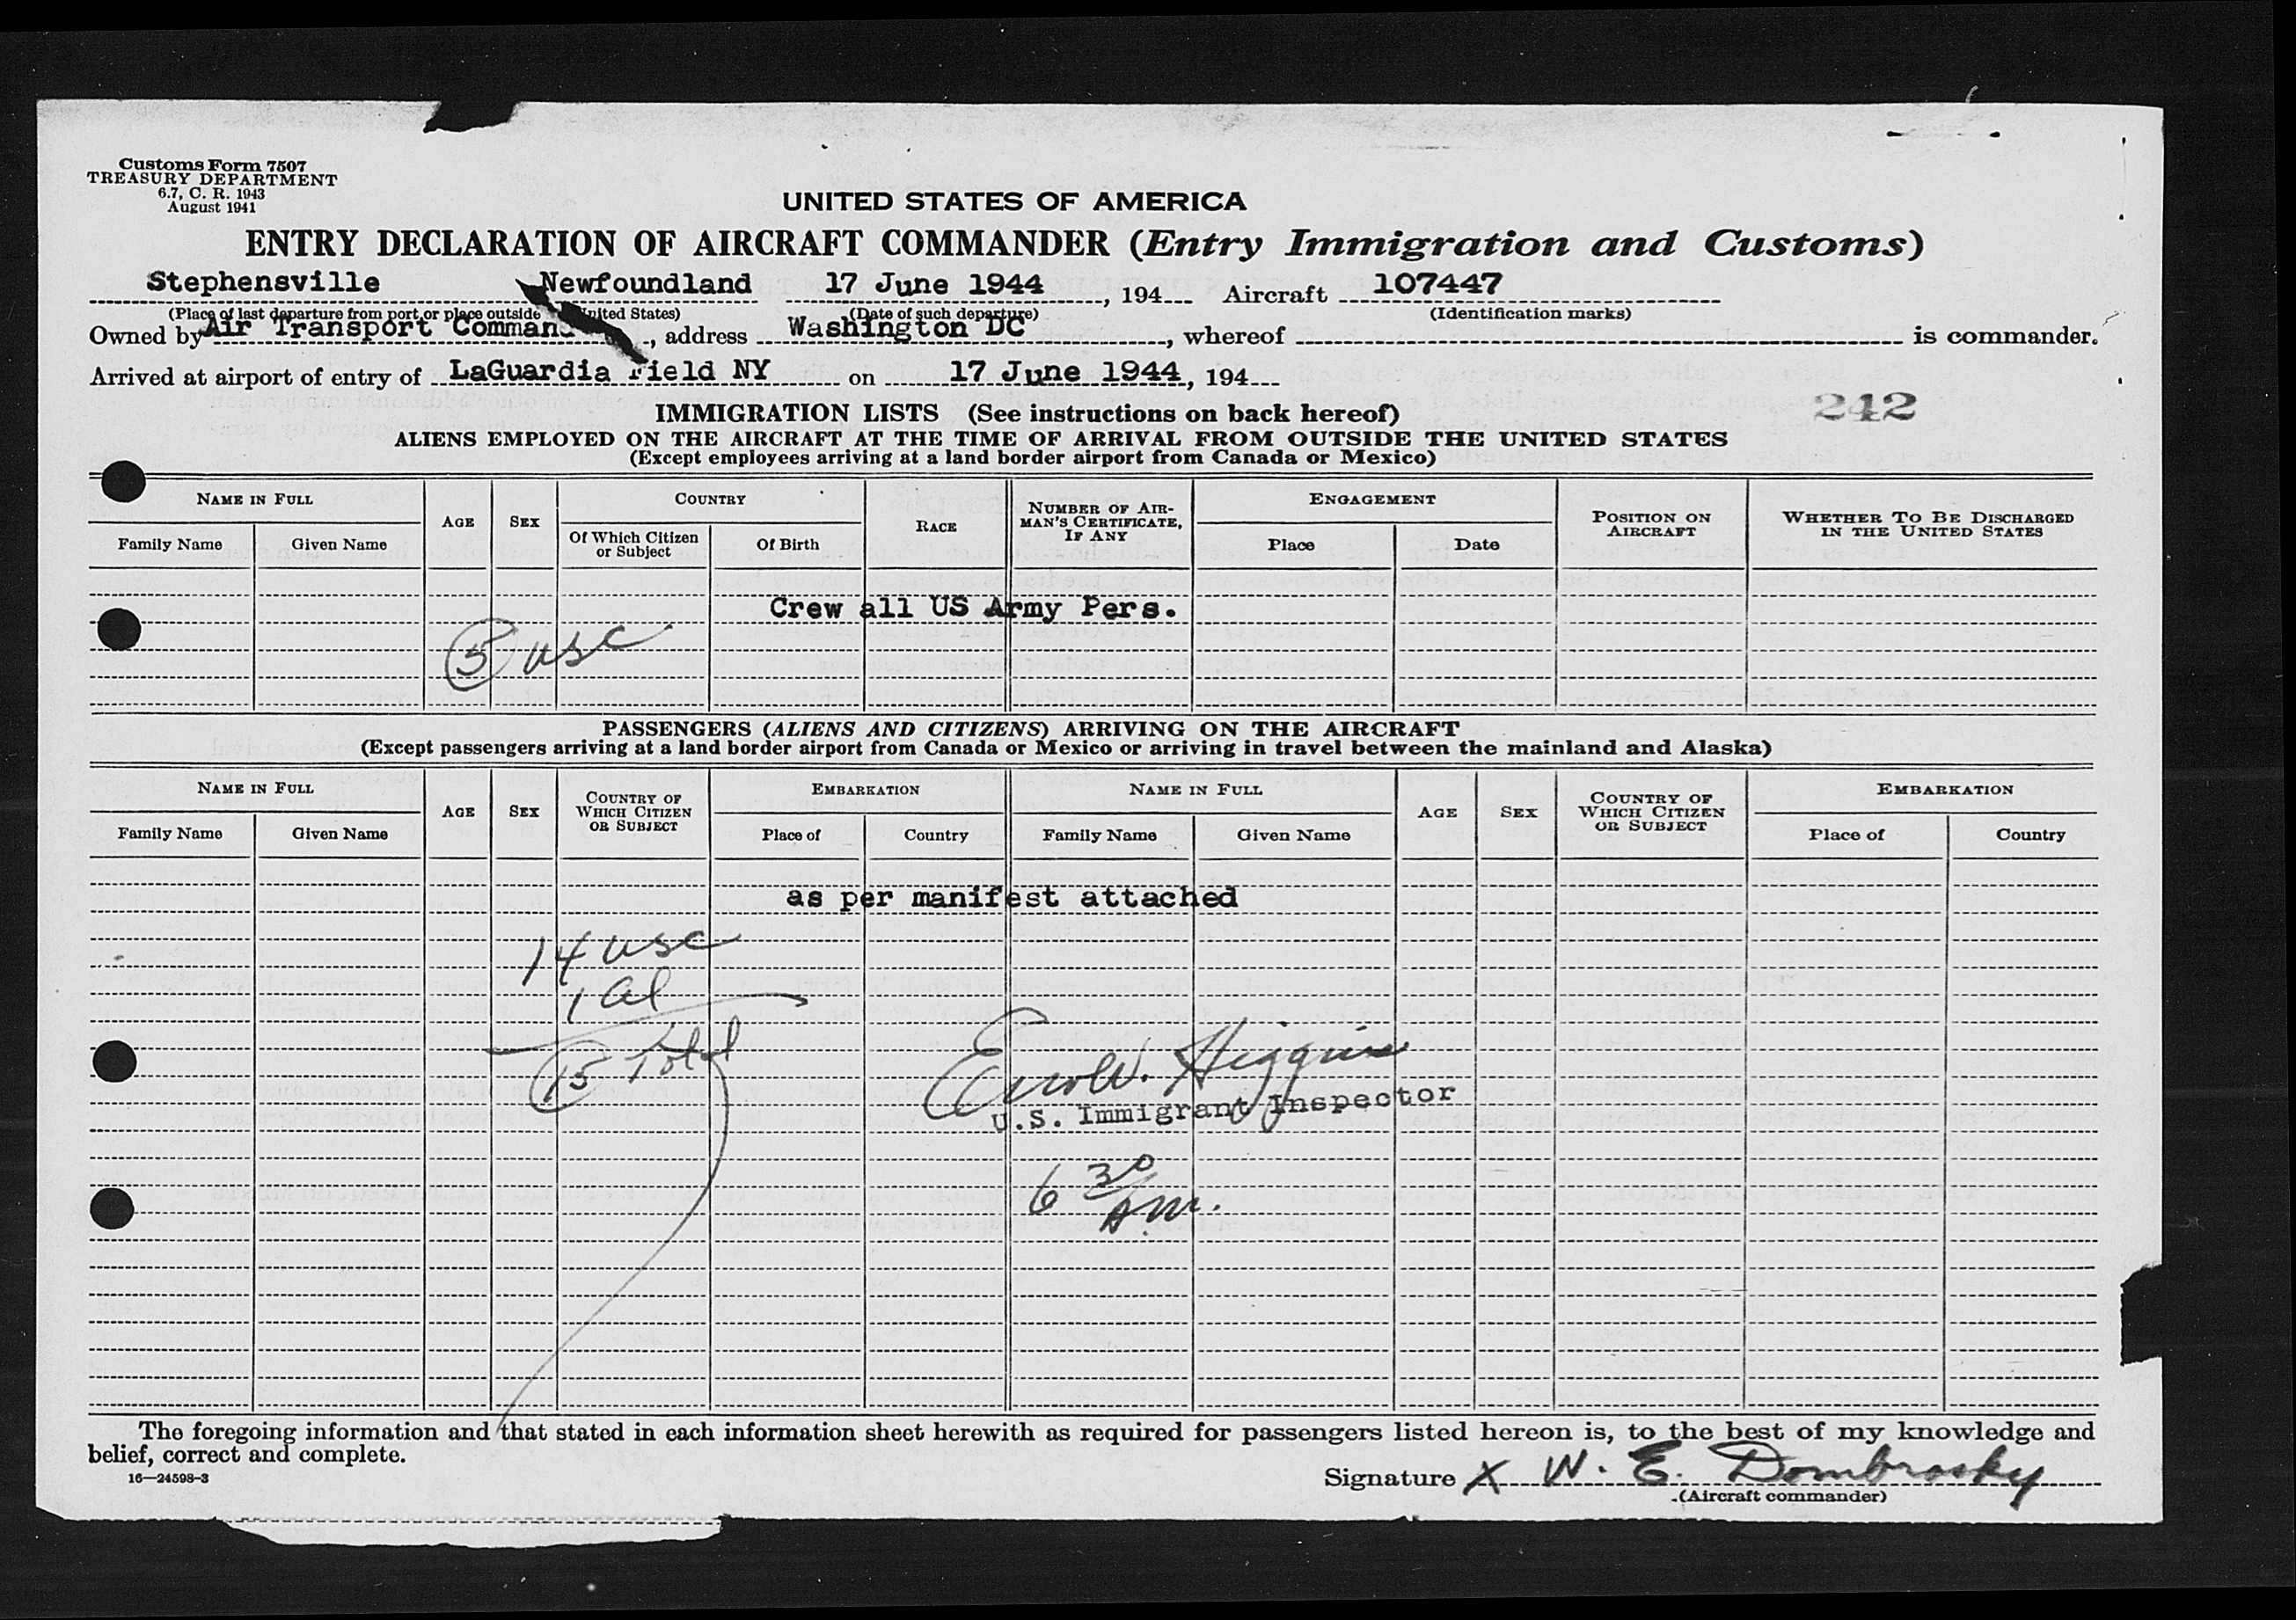 Customs Form 7507
TREASURY DEPARTMENT
6.7, C. R. 1943
August 1941
UNITED STATES OF AMERICA
ENTRY DECLARATION OF AIRCRAFT COMMANDER (Entry Immigration and Customs)
Stephensville Newfoundland 17 June 1944, 194 Aircraft 107447
(Place of last departure from port or place outside United States) (Date of such departure) (Identification marks)
Owned by Air Transport Command, address Washington DC, whereof is commander.
Arrived at airport of entry of LaGuardia Field NY on 17 June 1944, 194
IMMIGRATION LISTS (See instructions on back hereof) 242
ALIENS EMPLOYED ON THE AIRCRAFT AT THE TIME OF ARRIVAL FROM OUTSIDE THE UNITED STATES
(Except employees arriving at a land border airport from Canada or Mexico)
NAME IN FULL AGE SEX COUNTRY RACE NUMBER OF AIRMAN'S CERTIFICATE, IF ANY ENGAGEMENT POSITION ON AIRCRAFT WHETHER TO BE DISCHARGED IN THE UNITED STATES
Family Name Given Name Of Which Citizen or Subject Of Birth Place Date
Crew all US Army Pers.
5 usc
PASSENGERS (ALIENS AND CITIZENS) ARRIVING ON THE AIRCRAFT
(Except passengers arriving at a land border airport from Canada or Mexico or arriving in travel between the mainland and Alaska)
NAME IN FULL AGE SEX COUNTRY OF WHICH CITIZEN OR SUBJECT EMBARKATION NAME IN FULL AGE SEX COUNTRY OF WHICH CITIZEN OR SUBJECT EMBARKATION
Family Name Given Name Place of Country Family Name Given Name Place of Country
as per manifest attached
14 usc
1 al
15 Total
W. Higgins
U.S. Immigrant Inspector
6 30 AM.
The foregoing information and that stated in each information sheet herewith as required for passengers listed hereon is, to the best of my knowledge and
belief, correct and complete.
16—24598-3
Signature X W. E. Dombrosky
(Aircraft commander)